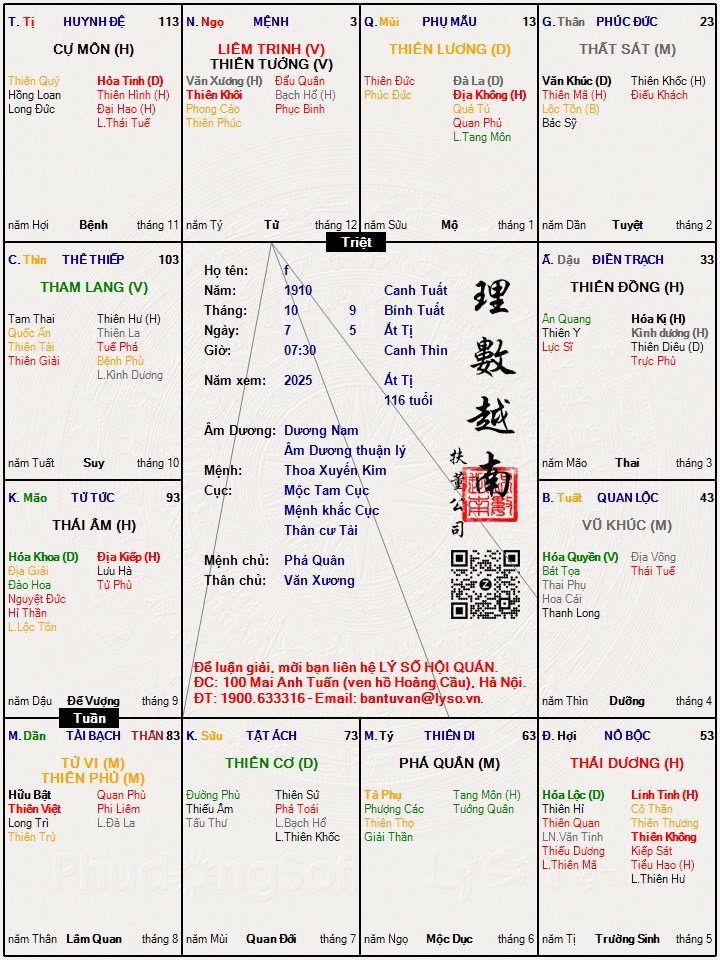 T. Tị HUYNH ĐỆ 113
CỰ MÔN (H)
Thiên Quý
Hồng Loan
Long Đức
Hỏa Tinh (D)
Thiên Hình (H)
Đại Hao (H)
L.Thái Tuế
năm Hợi Bệnh tháng 11
N. Ngọ MỆNH 3
LIÊM TRINH (V)
THIÊN TƯỚNG (V)
Văn Xương (H)
Thiên Khôi
Phong Cáo
Thiên Phúc
Đẩu Quân
Bạch Hổ (H)
Phục Binh
năm Tý Tử tháng 12
Q. Mùi PHỤ MẪU 13
THIÊN LƯƠNG (D)
Thiên Đức
Phúc Đức
Đà La (D)
Địa Không (H)
Quả Tú
Quan Phủ
L.Tang Môn
năm Sửu Mộ tháng 1
G. Thân PHÚC ĐỨC 23
THẤT SÁT (M)
Văn Khúc (D)
Thiên Mã (H)
Lộc Tồn (B)
Bác Sỹ
Thiên Khốc (H)
Điếu Khách
năm Dần Tuyệt tháng 2
Triệt
C. Thìn THÊ THIẾP 103
THAM LANG (V)
Tam Thai
Quốc Ấn
Thiên Tài
Thiên Giải
Thiên Hư (H)
Thiên La
Tuế Phá
Bệnh Phù
L.Kình Dương
năm Tuất Suy tháng 10
Họ tên: f
Năm: 1910 Canh Tuất
Tháng: 10 9 Bính Tuất
Ngày: 7 5 Ất Tị
Giờ: 07:30 Canh Thìn
Năm xem: 2025 Ất Tị
116 tuổi
Âm Dương: Dương Nam
Âm Dương thuận lý
Mệnh: Thoa Xuyến Kim
Cục: Mộc Tam Cục
Mệnh khắc Cục
Thân cư Tài
Mệnh chủ: Phá Quân
Thân chủ: Văn Xương
理數越南
扶董公司
Z
Để luận giải, mời bạn liên hệ LÝ SỐ HỘI QUÁN.
ĐC: 100 Mai Anh Tuấn (ven hồ Hoàng Cầu), Hà Nội.
ĐT: 1900.633316 - Email: bantuvan@lyso.vn.
Ấ. Dậu ĐIỀN TRẠCH 33
THIÊN ĐỒNG (H)
Ân Quang
Thiên Y
Lực Sĩ
Hóa Kị (H)
Kình dương (H)
Thiên Diêu (D)
Trực Phù
năm Mão Thai tháng 3
K. Mão TỬ TỨC 93
THÁI ÂM (H)
Hóa Khoa (D)
Địa Giải
Đào Hoa
Nguyệt Đức
Hỉ Thần
L.Lộc Tồn
Địa Kiếp (H)
Lưu Hà
Tử Phù
năm Dậu Đế Vượng tháng 9
B. Tuất QUAN LỘC 43
VŨ KHÚC (M)
Hóa Quyền (V)
Bát Tọa
Thai Phụ
Hoa Cái
Thanh Long
Địa Võng
Thái Tuế
năm Thìn Dưỡng tháng 4
Tuần
M. Dần TÀI BẠCH THÂN 83
TỬ VI (M)
THIÊN PHỦ (M)
Hữu Bật
Thiên Việt
Long Trì
Thiên Trù
Quan Phù
Phi Liêm
L.Đà La
năm Thân Lâm Quan tháng 8
K. Sửu TẬT ÁCH 73
THIÊN CƠ (D)
Đường Phù
Thiếu Âm
Tấu Thư
Thiên Sứ
Phá Toái
L.Bạch Hổ
L.Thiên Khốc
năm Mùi Quan Đới tháng 7
M. Tý THIÊN DI 63
PHÁ QUÂN (M)
Tả Phụ
Phượng Các
Thiên Thọ
Giải Thần
Tang Môn (H)
Tướng Quân
năm Ngọ Mộc Dục tháng 6
Đ. Hợi NÔ BỘC 53
THÁI DƯƠNG (H)
Hóa Lộc (D)
Thiên Hỉ
Thiên Quan
LN.Văn Tinh
Thiếu Dương
L.Thiên Mã
Linh Tinh (H)
Cô Thần
Thiên Thương
Thiên Không
Kiếp Sát
Tiểu Hao (H)
L.Thiên Hư
năm Tị Trường Sinh tháng 5